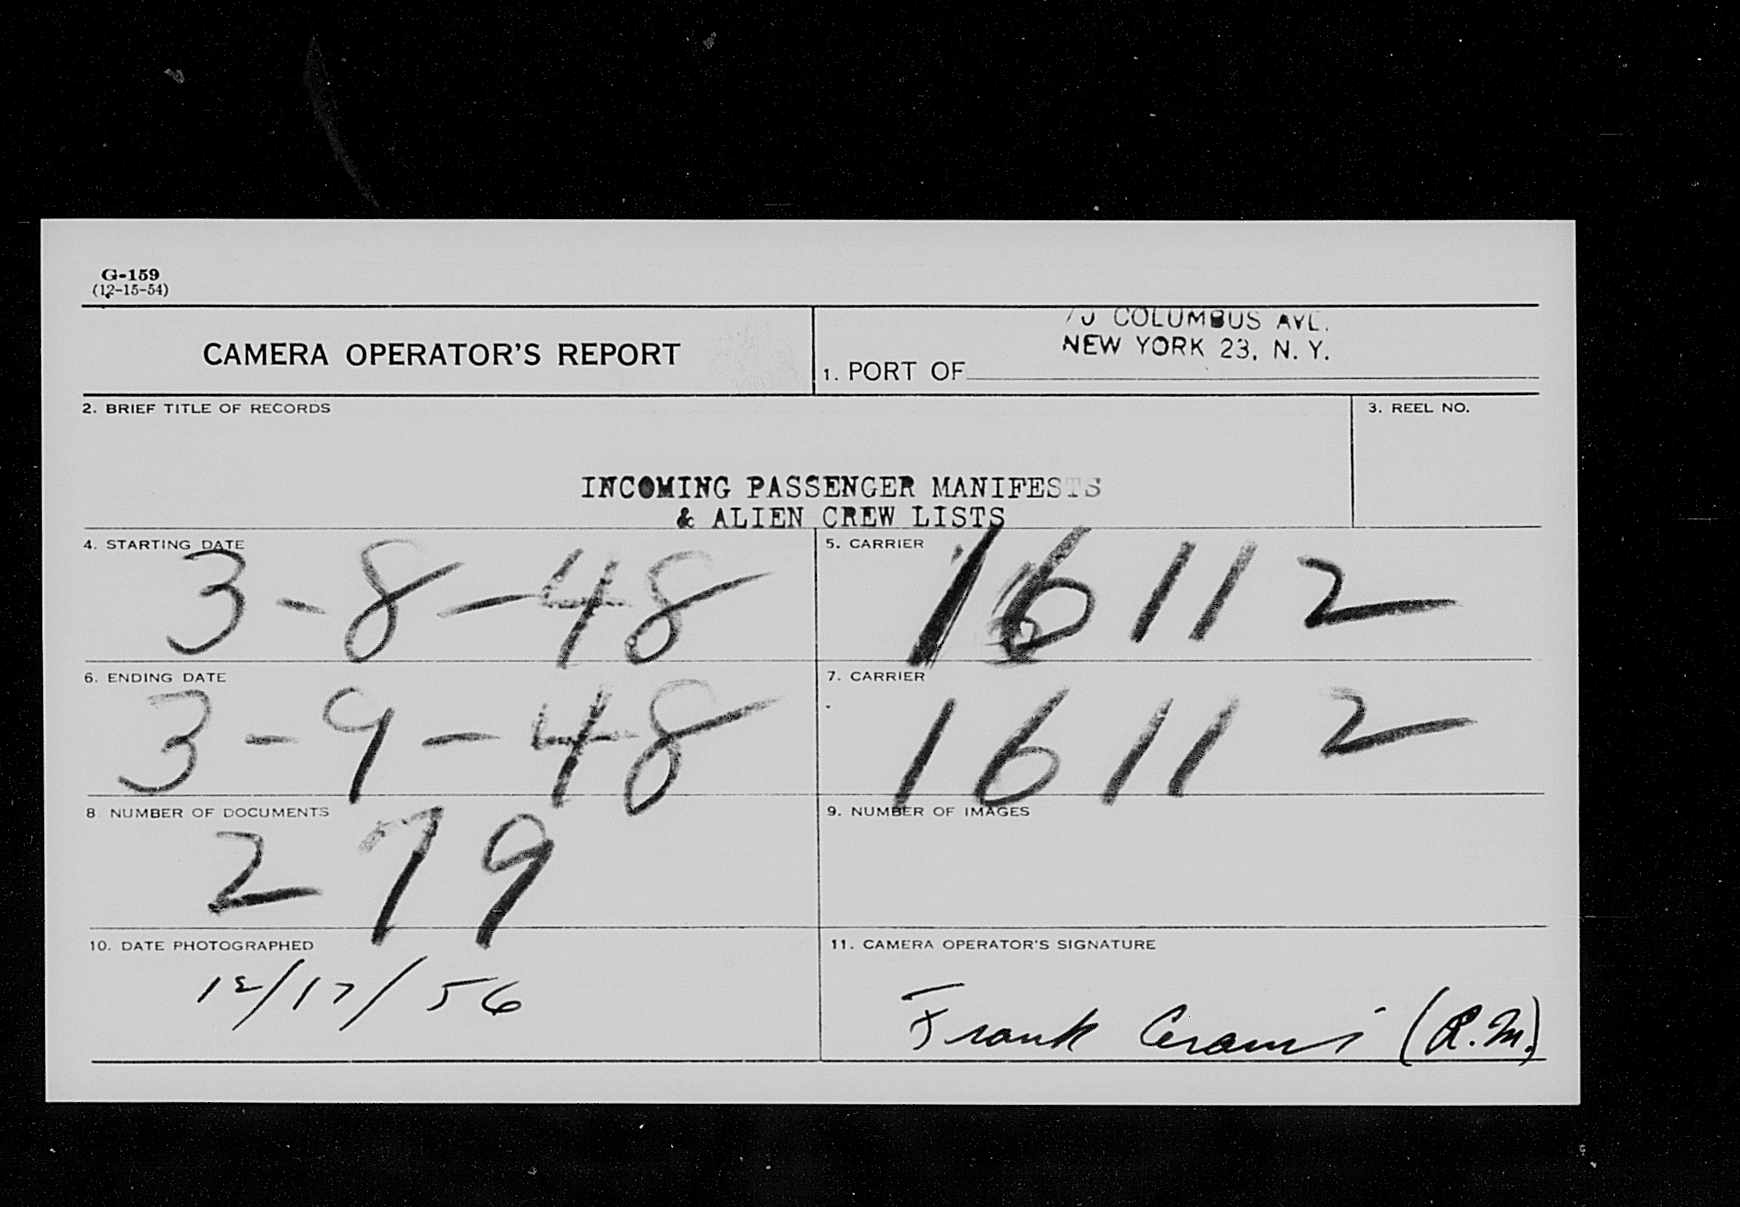 G-159
(12-15-54)
CAMERA OPERATOR'S REPORT
70 COLUMBUS AVE.
NEW YORK 23, N. Y.
1. PORT OF
2. BRIEF TITLE OF RECORDS
3. REEL NO.
INCOMING PASSENGER MANIFESTS
& ALIEN CREW LISTS
4. STARTING DATE
3-8-48
5. CARRIER
16112
6. ENDING DATE
3-9-48
7. CARRIER
16112
8 NUMBER OF DOCUMENTS
279
9. NUMBER OF IMAGES
10. DATE PHOTOGRAPHED
12/17/56
11. CAMERA OPERATOR'S SIGNATURE
Frank Cerami (R.M.)